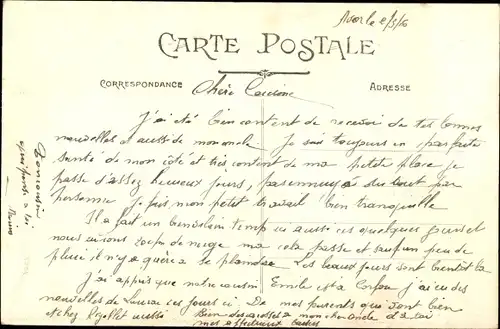 CARTE POSTALE
CORRESPONDANCE
ADRESSE
Chère Cousine
J'ai été bien content de recevoir de tes bonnes
nouvelles et aussi de mon oncle je suis toujours en parfaite
santé de mon côté et très content de ma petite place je
passe d'assez heureux jours, pas ennuyé du tout par
personne je fais mon petit travail bien tranquille
Il a fait un bien vilain temp ici aussi ces quelques jours et
nous avons de neige ma cela passe et sauf un peu de
pluie il n'y a guère à se plaindre Les beaux jours sont bientôt là
J'ai appris que notre cousin Emile est a Corfou j'ai eu des
nouvelles de ces jours ci De mes parents qui vont bien
et chez aussi Bien des caresses a mon cher oncle et a toi
mes affectueux baisers
Bon cousin
qui pense a toi